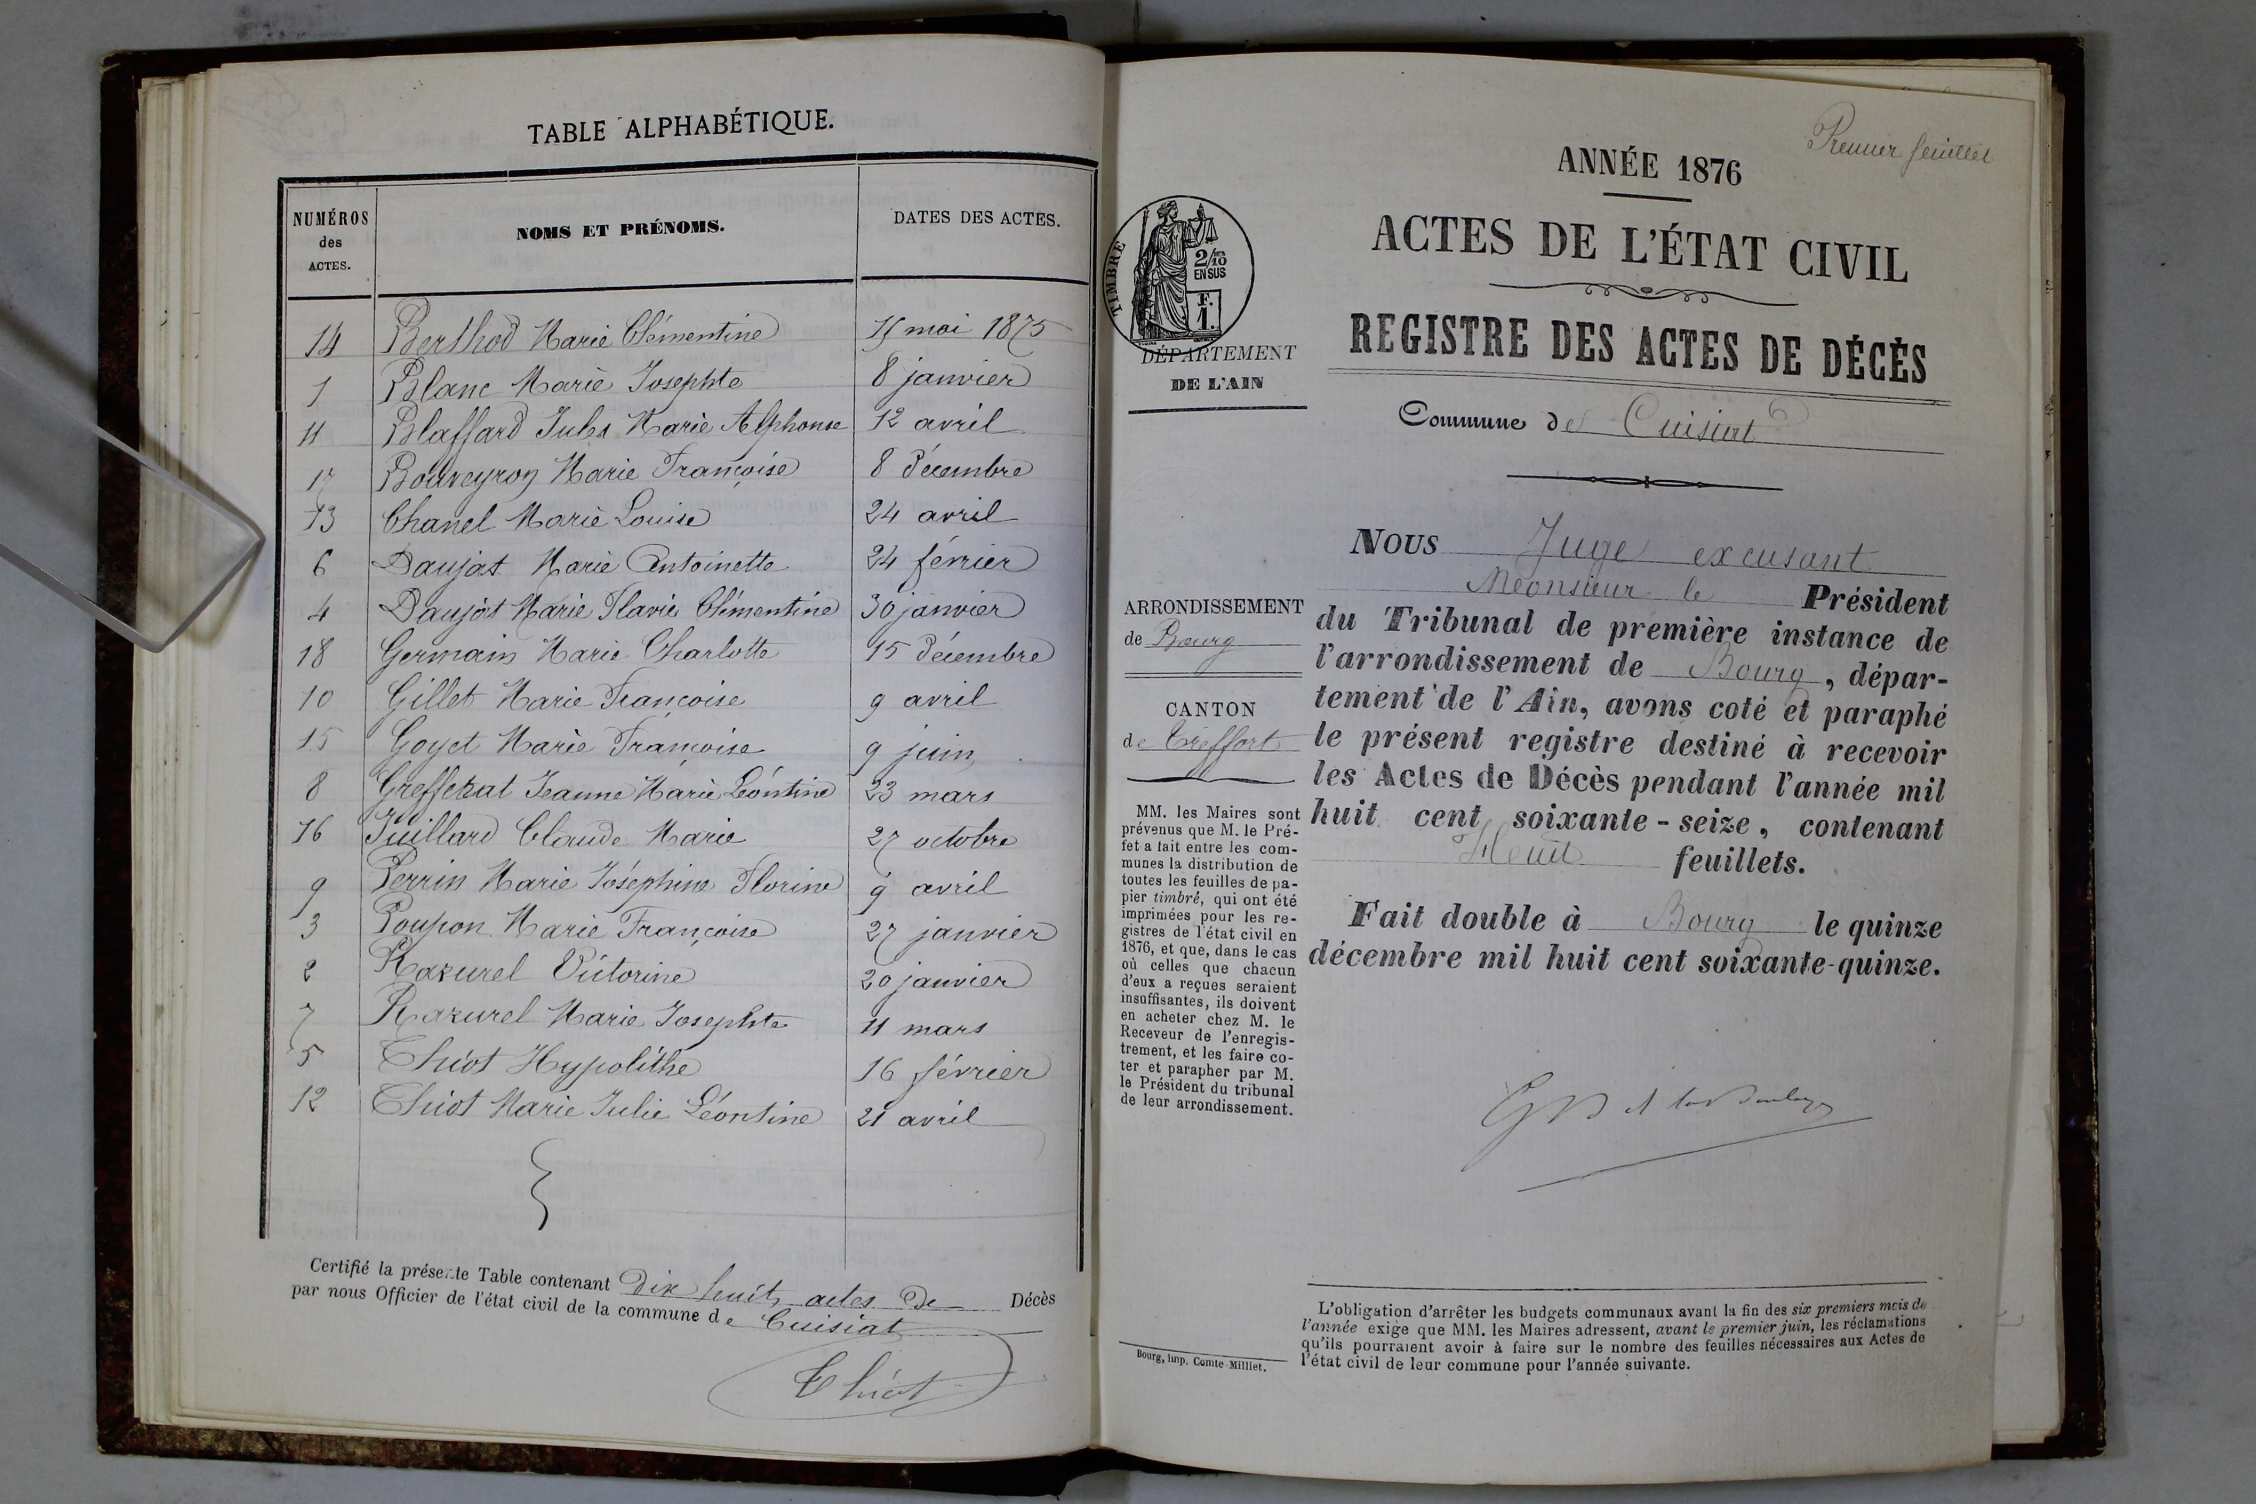 TABLE ALPHABÉTIQUE.
NUMÉROS des ACTES. NOMS ET PRÉNOMS. DATES DES ACTES.
14 Berthod Marie Clémentine mai 1875
1 Blanc Marie Josephte 8 janvier
11 Blaffard Jules Marie Alphonse 12 avril
17 Bouveyron Marie Françoise 8 décembre
13 Chanel Marie Louise 24 avril
6 Daujat Marie Antoinette 24 février
4 Daujat Marie Flavie Clémentine 30 janvier
18 Germain Marie Charlotte 15 décembre
10 Gillet Marie Françoise 9 avril
15 Goyet Marie Françoise 9 juin
8 Jeanne Marie Léontine 23 mars
16 Juillard Claude Marie 27 octobre
9 Perrin Marie Joséphine Florine 9 avril
3 Poupon Marie Françoise 27 janvier
2 Razurel Victorine 20 janvier
7 Razurel Marie Josephte 11 mars
5 Thiot Hypolithe 16 février
12 Thiot Marie Julie Léontine 21 avril
Certifié la présente Table contenant Dix huit actes de Décès
par nous Officier de l'état civil de la commune de Cuisiat
Thiot
Premier feuillet
ANNÉE 1876
ACTES DE L'ÉTAT CIVIL
REGISTRE DES ACTES DE DÉCÈS
Commune de Cuisiat
TIMBRE
2/10
EN SUS
F.
1.
DÉPARTEMENT
DE L'AIN
ARRONDISSEMENT
de Bourg
CANTON
de Treffort
MM. les Maires sont
prévenus que M. le Pré-
fet a fait entre les com-
munes la distribution de
toutes les feuilles de pa-
pier timbré, qui ont été
imprimées pour les re-
gistres de l'état civil en
1876, et que, dans le cas
où celles que chacun
d'eux a reçues seraient
insuffisantes, ils doivent
en acheter chez M. le
Receveur de l'enregis-
trement, et les faire co-
ter et parapher par M.
le Président du tribunal
de leur arrondissement.
Nous Juge excusant
Monsieur le Président
du Tribunal de première instance de
l'arrondissement de Bourg, dépar-
tement de l'Ain, avons coté et paraphé
le présent registre destiné à recevoir
les Actes de Décès pendant l'année mil
huit cent soixante-seize, contenant
Huit feuillets.
Fait double à Bourg le quinze
décembre mil huit cent soixante-quinze.
L'obligation d'arrêter les budgets communaux avant la fin des six premiers mois de
l'année exige que MM. les Maires adressent, avant le premier juin, les réclamations
qu'ils pourraient avoir à faire sur le nombre des feuilles nécessaires aux Actes de
l'état civil de leur commune pour l'année suivante.
Bourg, imp. Comte-Milliet.